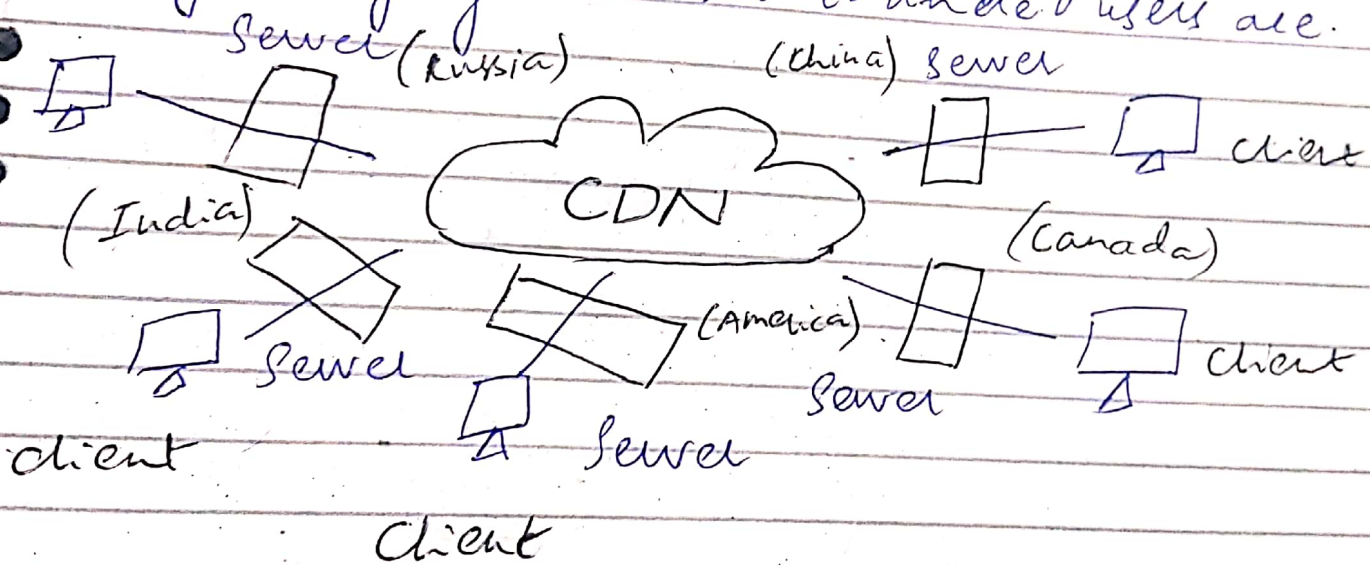 users are.
Server (Russia) (China) Server
Client
CDN
(India) (Canada)
(America)
Server Client
Server
Client Server
Client